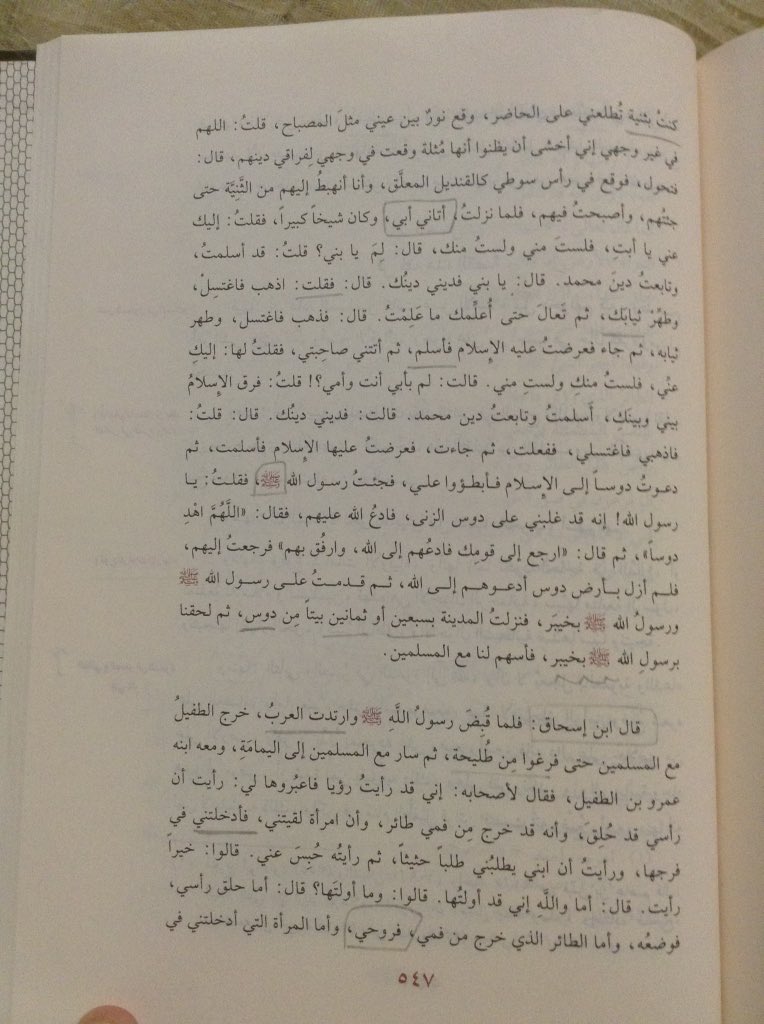 كنتُ بثنية تُطلعني على الحاضر، وقع نورٌ بين عيني مثلَ المصباح، قلتُ: اللهم
في غير وجهي إني أخشى أن يظنوا أنها مُثلة وقعت في وجهي لِفراقي دينهم، قال:
فتحول، فوقع في رأس سوطي كالقنديل المعلَّق، وأنا أنهبطُ إليهم من الثَّنِيَّة حتى
جئتُهم، وأصبحتُ فيهم، فلما نزلتُ، أتاني أبي، وكان شيخاً كبيراً، فقلتُ: إليك
عني يا أبتِ، فلستَ مني ولستُ منك، قال: لِمَ يا بني؟ قلتُ: قد أسلمتُ،
وتابعتُ دينَ محمد. قال: يا بني فديني دينُك. قال: فقلت: اذهب فاغتسِلْ،
وطهِّرْ ثيابَك، ثم تَعالَ حتى أُعلِّمك ما عَلِمْتُ. قال: فذهب فاغتسل، وطهر
ثيابه، ثم جاء فعرضتُ عليه الإسلام فأسلم، ثم أتتني صاحِبتي، فقلتُ لها: إليكِ
عنِّي، فلستُ منكِ ولستِ مني. قالت: لم بأبي أنت وأمي؟! قلتُ: فرق الإسلامُ
بيني وبينَكِ، أَسلمتُ وتابعتُ دين محمد. قالت: فديني دينُك. قال: قلتُ:
فاذهبي فاغتسلي، ففعلت، ثم جاءت، فعرضتُ عليها الإسلام فأسلمت، ثم
دعوتُ دوساً إلى الإسلام فأبطؤوا علي، فجئتُ رسول الله ﷺ، فقلتُ: يا
رسول الله! إنه قد غلبني على دوس الزنى، فادعُ الله عليهم، فقال: «اللَّهُمَّ اهْدِ
دوساً»، ثم قال: «ارجع إلى قومِك فادعُهم إلى الله، وارفُق بهم» فرجعتُ إليهم،
فلم أزل بأرض دوس أدعوهم إلى الله، ثم قدمتُ على رسول الله ﷺ
ورسولُ الله ﷺ بخيبَر، فنزلتُ المدينة بسبعين أو ثمانين بيتاً مِن دوس، ثم لحقنا
برسولِ الله ﷺ بخيبر، فأسهم لنا مع المسلمين.
قال ابن إسحاق: فلما قُبِضَ رسولُ اللَّهِ ﷺ وارتدت العربُ، خرج الطفيلُ
مع المسلمين حتى فرغوا مِن طُليحة، ثم سار مع المسلمين إلى اليمامَةِ، ومعه ابنه
عمرو بن الطفيل، فقال لأصحابه: إني قد رأيتُ رؤيا فاعبُروها لي: رأيت أن
رأسي قد حُلقَ، وأنه قد خرج مِن فمي طائر، وأن امرأة لقيتني، فأدخلتني في
فرجها، ورأيتُ أن ابني يطلبُني طلباً حثيثاً، ثم رأيتُه حُبِسَ عني. قالوا: خيراً
رأيت. قال: أما واللَّهِ إني قد أولتُها. قالوا: وما أولتَها؟ قال: أما حلق رأسي،
فوضعُه، وأما الطائر الذي خرج من فمي، فروحي، وأما المرأة التي أدخلتني في
٥٤٧